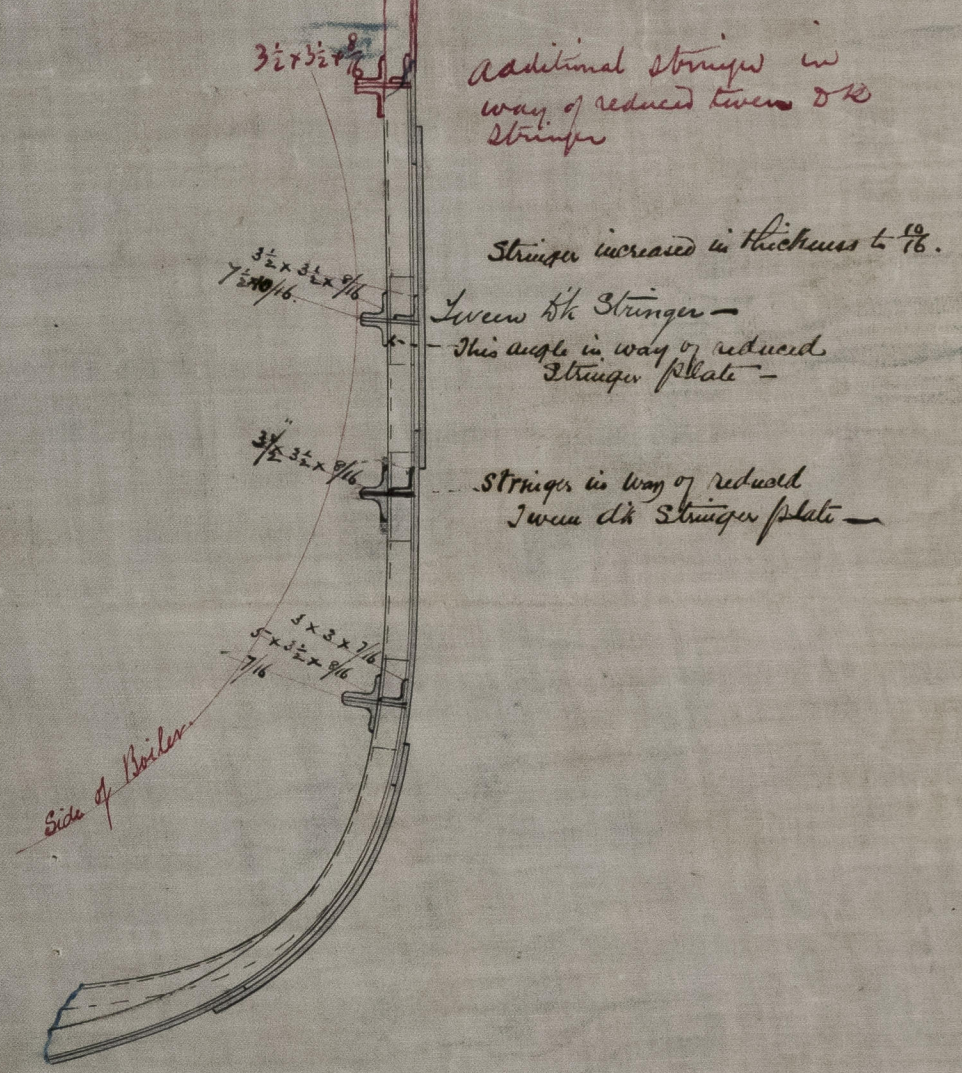 3½ × 3½ × 8/16
Additional stringer in
way of reduced tween DK
Stringer
Stringer increased in thickness to 10/16.
3½ × 3½ × 8/16
7½ × 10/16.
Tween Dk Stringer —
This angle in way of reduced
Stringer plate —
3½ × 3½ × 8/16
Stringer in way of reduced
Tween dk Stringer plate —
3 × 3 × 7/16
5 × 3½ × 8/16
7/16
Side of Boiler.